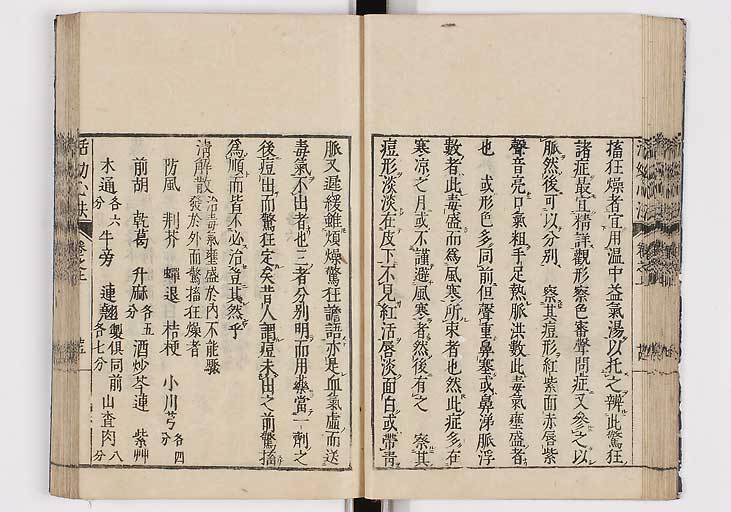 搐狂燥者宜用溫中益氣湯以托之辨此驚狂
諸症最宜精詳觀形察色審聲問症又參之以
脈然後可以分別 察其痘形紅紫面赤唇紫
聲音亮口氣粗手足熱脈洪數此毒氣壅盛者
也 或形色多同前但聲重鼻塞或鼻涕脈浮
數者此毒盛而為風寒所束者也然此症多在
寒凉之月或不謹避風寒者然後有之 察其
痘形淡淡在皮下不見紅活唇淡面白或帶青
脈又遲緩雖煩燥驚狂譫語亦是血氣虛而送
毒氣不出者也三者分別明而用藥當一劑之
後痘出而驚狂定矣昔人謂痘未出之前驚搐
為順而皆不必治豈其然乎
清解散 治毒氣壅盛於內不能驟發於外而驚搐狂燥者
防風 荆芥 蟬退 桔梗 小川芎各四分
前胡 乾葛 升麻各五分 酒炒芩連 紫艸
木通各六分 牛旁 連翹製俱同前各七分 山査肉八分
活幼心法